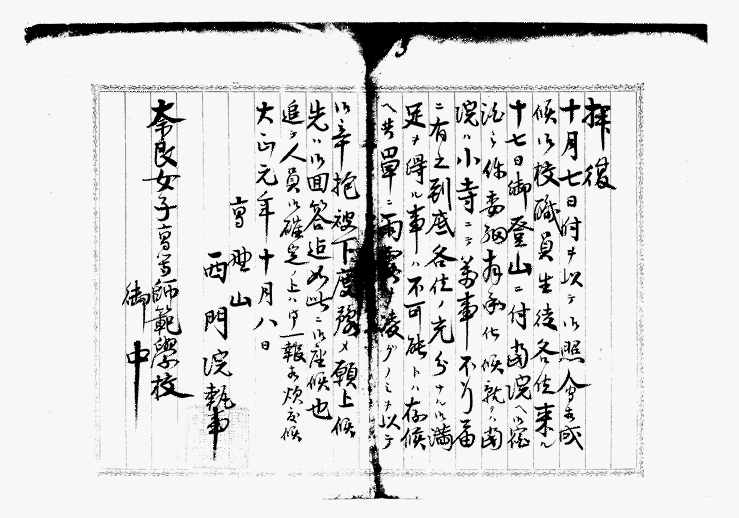 拝復
十月七日付ヲ以テ御照会相成
候御校職員生徒各位来ル
十七日御登山ニ付当院ヘ御宿
泊之件委細拝承仕候就テハ当
院ハ小寺ニテ萬事不行届
ニ有之到底各位ノ充分ナル御満
足ヲ得ル事ハ不可能トハ存候
ヘ共單ニ雨露ヲ凌グノミヲ以テ
御辛抱被下度豫メ願上候
先ハ御回答迄如此ニ御座候也
追テ人員御確定ノ上ハ御一報相煩度候
大正元年十月八日
高野山
西門院執事
奈良女子高等師範學校
御中